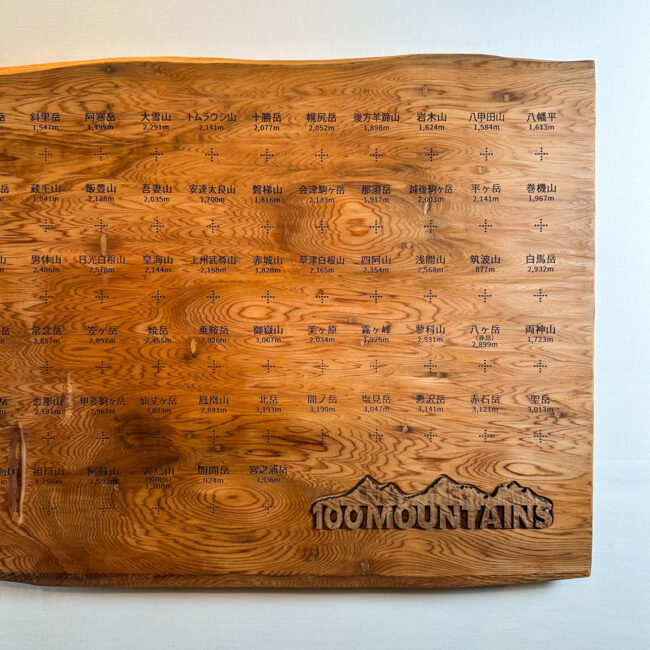 岳 斜里岳 阿寒岳 大雪山 トムラウシ山 十勝岳 幌尻岳 後方羊蹄山 岩木山 八甲田山 八幡平
m 1,547m 1,499m 2,291m 2,141m 2,077m 2,052m 1,898m 1,624m 1,584m 1,613m
岳 蔵王山 飯豊山 吾妻山 安達太良山 磐梯山 会津駒ヶ岳 那須岳 越後駒ヶ岳 平ヶ岳 巻機山
m 1,841m 2,128m 2,035m 1,700m 1,816m 2,133m 1,917m 2,003m 2,141m 1,967m
山 男体山 日光白根山 皇海山 上州武尊山 赤城山 草津白根山 四阿山 浅間山 筑波山 白馬岳
m 2,486m 2,578m 2,144m 2,158m 1,828m 2,165m 2,354m 2,568m 877m 2,932m
岳 常念岳 笠ヶ岳 焼岳 乗鞍岳 御嶽山 美ヶ原 霧ヶ峰 蓼科山 八ヶ岳 両神山
(赤岳)
m 2,857m 2,897m 2,455m 3,026m 3,067m 2,034m 1,925m 2,531m 2,899m 1,723m
恵那山 甲斐駒ヶ岳 仙丈ヶ岳 鳳凰山 北岳 間ノ岳 塩見岳 悪沢岳 赤石岳 聖岳
m 2,191m 2,967m 3,033m 2,841m 3,193m 3,190m 3,047m 3,141m 3,121m 3,013m
山 祖母山 阿蘇山 霧島山 開聞岳 宮之浦岳
m 1,756m 1,592m 1,700m 924m 1,936m
100MOUNTAINS